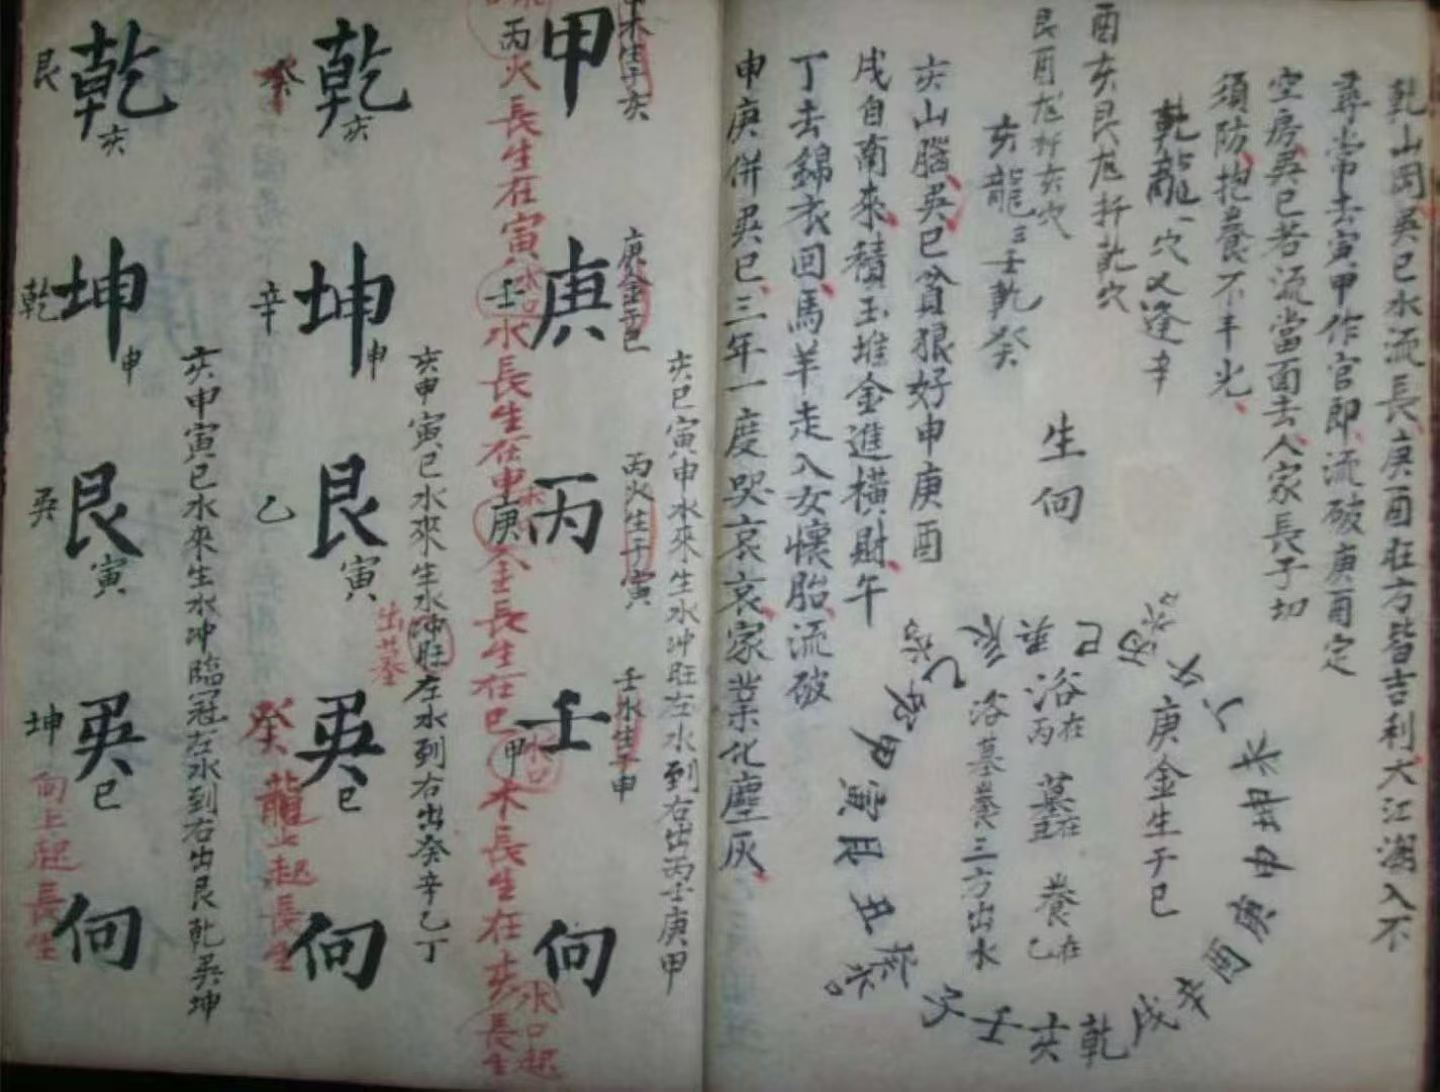 乾山岡巽巳水流長庚酉旺方皆吉利大江潮入不
尋常去寅甲作官即流破庚酉定
空房巽巳若流當面去人家長子切
須防抱養不丰光
乾龍一穴又逢辛
酉亥艮尨扦乾穴
艮酉尨扦亥穴
亥龍三壬乾癸
亥山腦巽巳貧狼好申庚酉
戌自南來積玉堆金進橫財午
丁去錦衣回馬羊走入女懷胎流破
申庚併巽巳三年一度哭哀哀家業化塵灰
生向
庚金生于巳
浴在丙
墓在丑
養在乙
浴墓養三方出水
巳
丙
丁
申
庚
酉
辛
戌
乾
亥
壬
子
癸
丑
艮
寅
甲
卯
乙
辰
巽
木生于亥
庚金于巳
丙火生于寅
壬水生于申
亥巳寅申水來生水冲旺左水到右出丙壬庚甲
甲
庚
丙
壬
向
丙火長生在寅
水口
壬水長生在申
庚金長生在巳
甲木長生在亥
水口
水口起長生
亥申寅巳水來生水冲旺左水到右出癸辛乙丁
出墓
乾亥
坤申
艮寅
巽巳
向
癸
辛
乙
癸龍上起長生
亥申寅巳水來生水冲臨冠左水到右出艮乾巽坤
乾亥
坤申
艮寅
巽巳
向
艮
乾
巽
坤
向上起長生